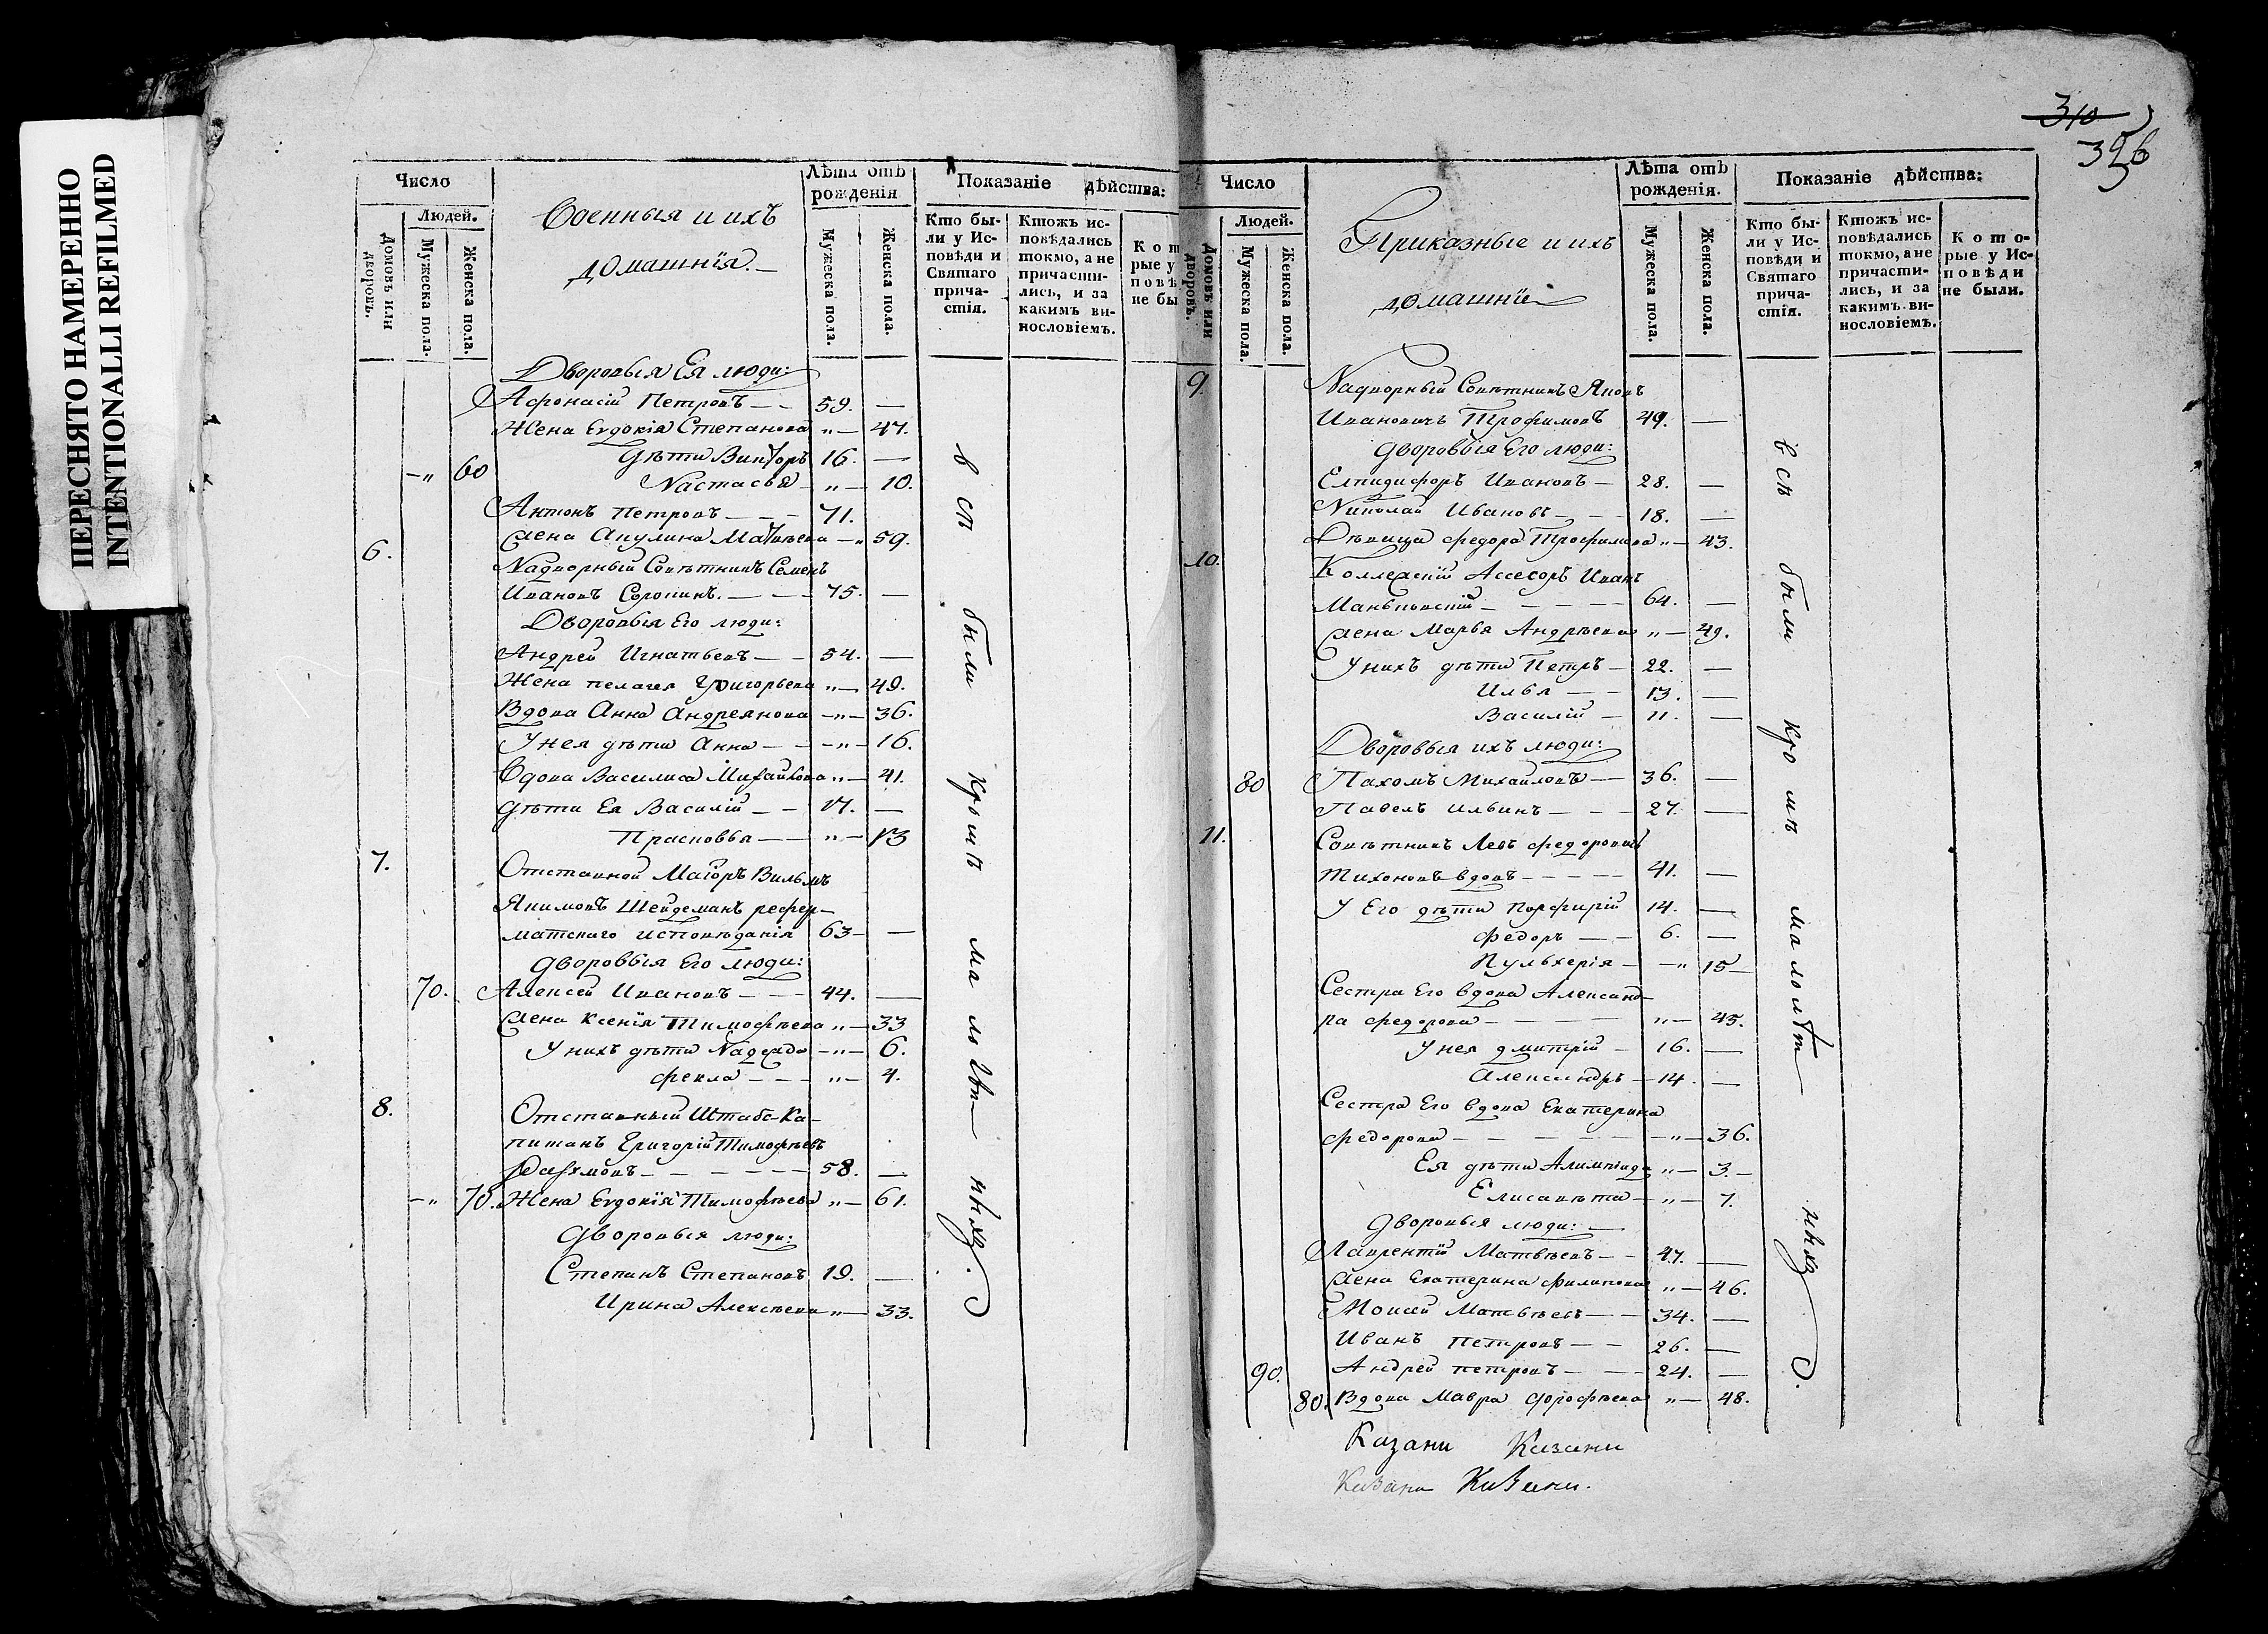 ПЕРЕСНЯТО НАМЕРЕННО
INTENTIONALLI REFILMED
Число
Людей.
Домовъ или дворовъ.
Мужеска пола.
Женска пола.
Военныя и ихъ
домашнїя.
Лѣта отъ рожденія
Мужеска пола.
Женска пола.
Показаніе дѣйства:
Кто бы-
ли у Ис-
повѣди и
Святаго
прича-
стія.
Ктожъ ис-
повѣдались
токмо, а не
причасти-
лись, и за
какимъ ви-
нословіемъ.
Кот
рые у
повѣ
не бы
Дворовыя Ея люди:
Афонасій Петровъ — — 59. —
Жена Евдокія Степанова " — 47.
Дѣти Викторъ 16. —
—" 60 Настасья " — 10.
Антонъ Петровъ — — — 71.
Жена Акулина Матвѣева —" 59.
6. Надворный Совѣтникъ Семенъ
Ивановъ — — — 75. —
Дворовыя Его люди:
Андрей Игнатьевъ — — 54. —
Жена пелагея Григорьева " — 49.
Вдова Анна Андреянова —"— 36.
У нея дѣти Анна — —"— 16.
Вдова Василиса Михайлова " — 41.
Дѣти Ея Василій — — 17. —
Прасковья — — " — 13
7. Отставной Маіоръ Вильмъ
Якимовъ Шейдеманъ рефор-
матскаго исповѣданія 63 — —
Дворовыя Его люди:
70. Алексей Ивановъ — — — 44. —
Жена Ксенія Тимофѣева " — 33
У нихъ дѣти Надежда —"— 6.
Фекла — — — " — 4.
8. Отставный Штабс-Ка-
питанъ Григорій Тимофѣевъ
Рахмовъ — — — — 58. —
—" 70. Жена Евдокія Тимофѣева " — 61.
Дворовыя люди:
Степанъ Степановъ 19. —
Ирина Алексѣева " — 33.
всѣ были кромѣ малолѣт— нихъ.
310
326
Число
Людей.
Домовъ или дворовъ.
Мужеска пола.
Женска пола.
Приказные и ихъ
домашнїе
Лѣта отъ рожденія.
Мужеска пола.
Женска пола.
Показаніе дѣйства:
Кто бы-
ли у Ис-
повѣди и
Святаго
прича-
стія.
Ктожъ ис-
повѣдались
токмо, а не
причасти-
лись, и за
какимъ ви-
нословіемъ.
Кото-
рые у Ис-
повѣди
не были.
9. Надворный Совѣтникъ Яковъ
Ивановичъ Трофимовъ 49. —
Дворовыя Его люди:
Елпидифоръ Ивановъ — 28. —
Николай Ивановъ — — 18. —
Дѣвица Федора Трофимова " — 43.
10. Коллежскій Ассесоръ Иванъ
Маньковскій — — — — 64. —
Жена Марья Андрѣева " — 49.
У нихъ дѣти Петръ — 22. —
Илья — — 13. —
Василій — 11. —
Дворовыя ихъ люди:
80 Пахомъ Михайловъ — 36. —
Павелъ Ильинъ — — — 27. —
11. Совѣтникъ Левъ Федоровичь
Тихоновъ вдовъ — — — — 41. —
У Его дѣти Порфирій 14. —
Федоръ — — 6. —
Пульхерія — —" 15 —
Сестра Его вдова Александ-
ра Федорова — — — " — 45.
У нея Дмитрій — 16. —
Александръ — 14. —
Сестра Его вдова Екатерина
Федорова — — — — —"— 36.
Ея дѣти Алимпіида " — 3. —
Елисавѣта — " — 7.
Дворовыя люди: —
Лаврентій Матвѣевъ — — 47. —
Жена Екатерина Филипова " — 46.
Моисей Матвѣевъ — — 34. —
Иванъ Петровъ — — 26. —
90. Андрей петровъ — — — 24. —
80. Вдова Мавра Дорофѣева " — 48.
всѣ были кромѣ малолѣт— нихъ.
Казани Казани
Казани Казани.